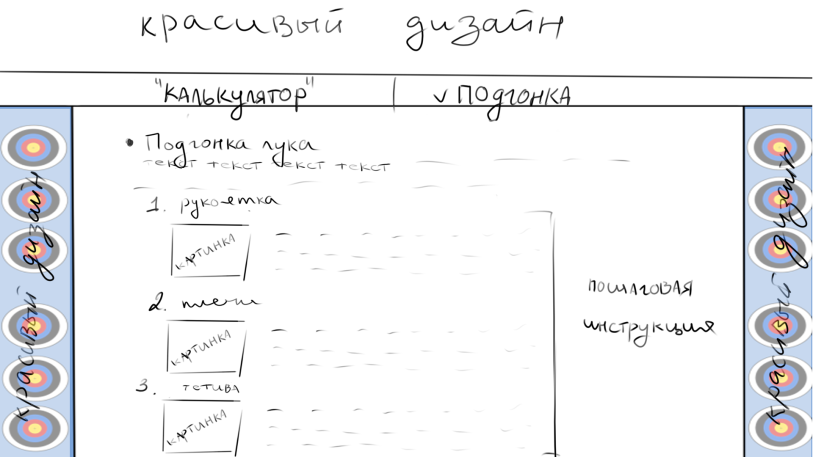 красивый дизайн
"КАЛЬКУЛЯТОР" | ✓ ПОДГОНКА
• Подгонка лука
текст текст текст текст
1. рукоетка
КАРТИНКА
2. плечи
КАРТИНКА
3. тетива
КАРТИНКА
пошаговая
инструкция
красивый дизайн
красивый дизайн